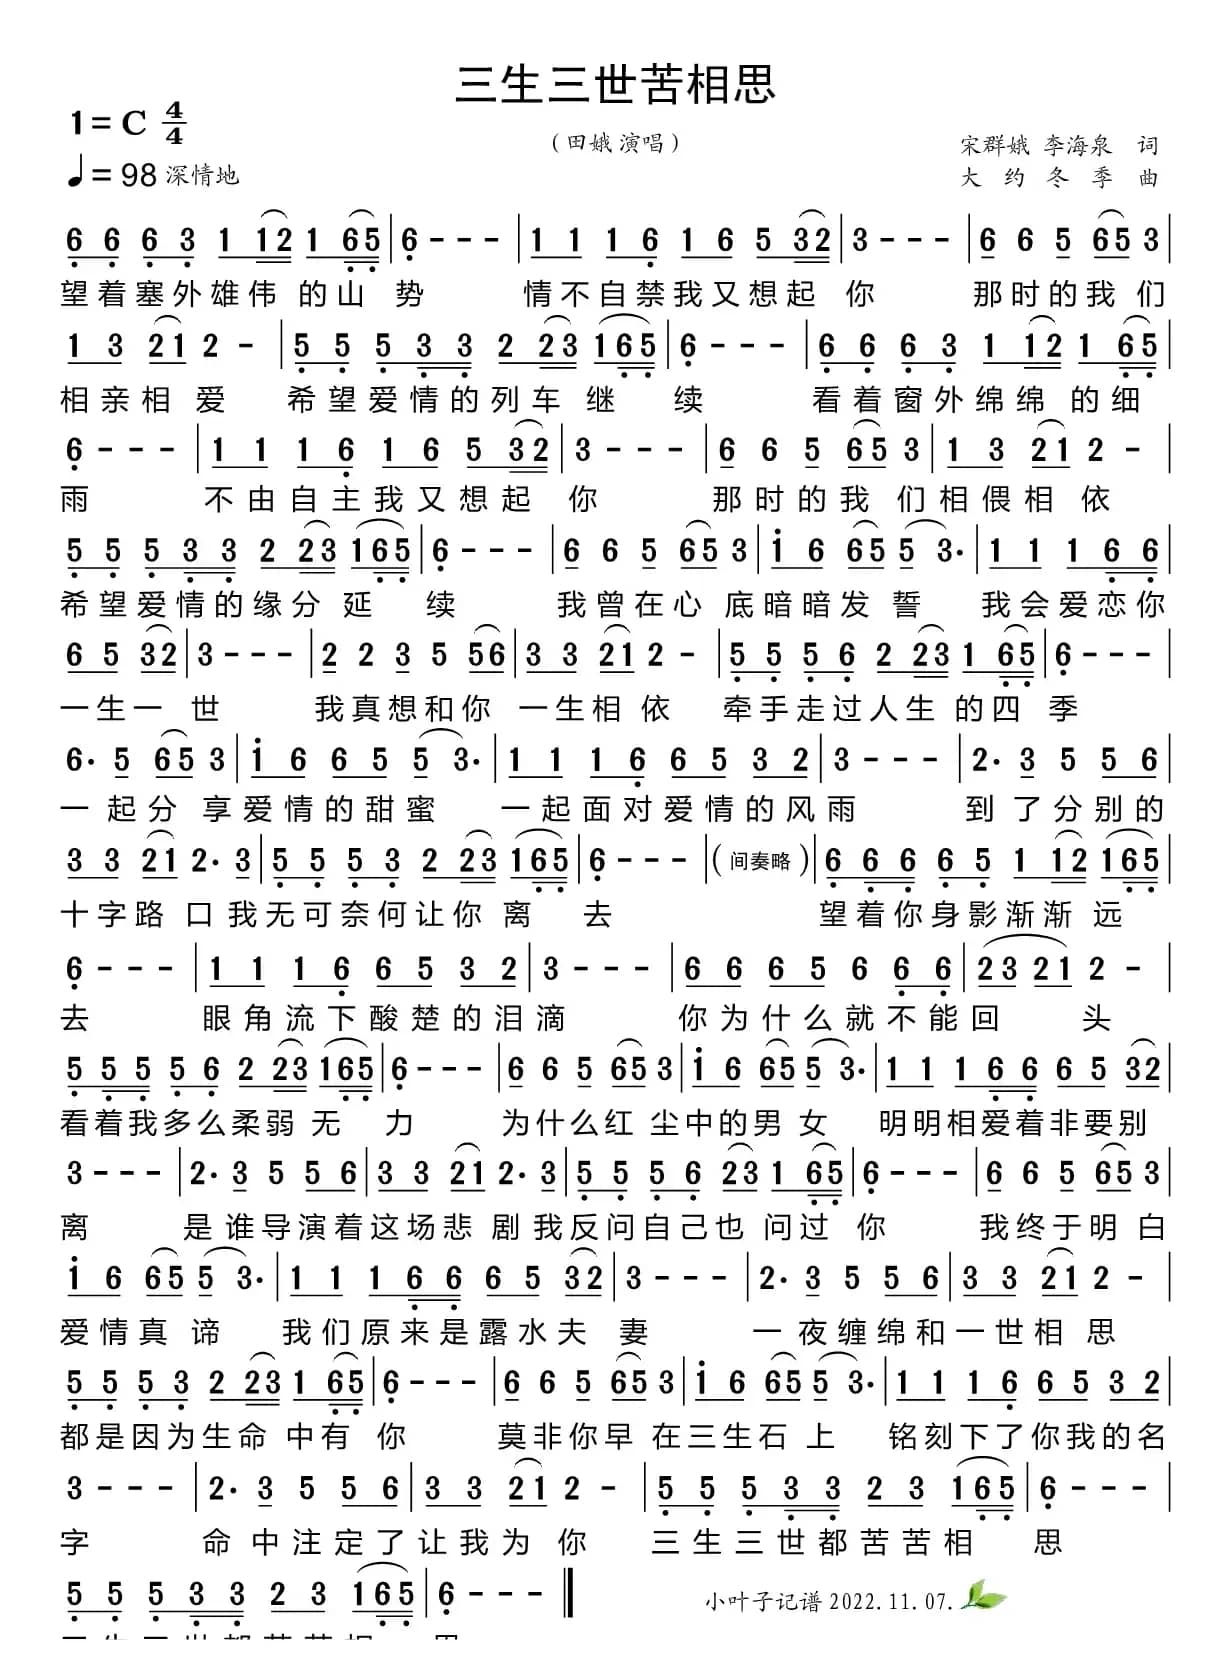 三生三世苦相思
1=C 4/4
(田娥演唱)
宋群娥 李海泉 词
♩=98 深情地
大约冬季 曲
6 6 6 3 1 12 1 65 | 6 - - - | 1 1 1 6 1 6 5 32 | 3 - - - | 6 6 5 65 3 |
望着塞外雄伟 的山 势 情不自禁我又想起 你 那时的我 们
1 3 21 2 - | 5 5 5 3 3 2 23 165 | 6 - - - | 6 6 6 3 1 12 1 65 |
相亲相 爱 希望爱情的列车 继 续 看着窗外绵绵 的细
6 - - - | 1 1 1 6 1 6 5 32 | 3 - - - | 6 6 5 65 3 | 1 3 21 2 - |
雨 不由自主我又想起 你 那时的我 们相偎相 依
5 5 5 3 3 2 23 165 | 6 - - - | 6 6 5 65 3 | i 6 65 5 3. | 1 1 1 6 6
希望爱情的缘分 延 续 我曾在心 底暗暗发 誓 我会爱恋你
6 5 32 | 3 - - - | 2 2 3 5 56 | 3 3 21 2 - | 5 5 5 6 2 23 1 65 | 6 - - - |
一生一 世 我真想和你 一生相 依 牵手走过人生 的四 季
6. 5 65 3 | i 6 6 5 5 3. | 1 1 1 6 6 5 3 2 | 3 - - - | 2. 3 5 5 6 |
一起分 享爱情的甜蜜 一起面对爱情的风雨 到了分别的
3 3 21 2. 3 | 5 5 5 3 2 23 165 | 6 - - - | (间奏略) | 6 6 6 6 5 1 12 165 |
十字路 口我无可奈何让你 离 去 望着你身影渐渐 远
6 - - - | 1 1 1 6 6 5 3 2 | 3 - - - | 6 6 6 5 6 6 6 | 23 21 2 - |
去 眼角流下酸楚的泪滴 你为什么就不能回 头
5 5 5 5 6 2 23 165 | 6 - - - | 6 6 5 65 3 | i 6 65 5 3. | 1 1 1 6 6 6 5 32
看着我多么柔弱 无 力 为什么红 尘中的男 女 明明相爱着非要别
3 - - - | 2. 3 5 5 6 | 3 3 21 2. 3 | 5 5 5 6 23 1 65 | 6 - - - | 6 6 5 65 3 |
离 是谁导演着这场悲 剧我反问自己也 问过 你 我终于明 白
i 6 65 5 3. | 1 1 1 6 6 6 5 32 | 3 - - - | 2. 3 5 5 6 | 3 3 21 2 - |
爱情真 谛 我们原来是露水夫 妻 一夜缠绵和一世相 思
5 5 5 3 2 23 1 65 | 6 - - - | 6 6 5 65 3 | i 6 65 5 3. | 1 1 1 6 6 5 3 2
都是因为生命 中有 你 莫非你早 在三生石 上 铭刻下了你我的名
3 - - - | 2. 3 5 5 6 | 3 3 21 2 - | 5 5 5 3 3 2 3 165 | 6 - - - |
字 命中注定了让我为 你 三生三世都苦苦相 思
5 5 5 3 3 2 3 165 | 6 - - - ‖
小叶子记谱 2022.11.07.
三生三世都苦苦相 思